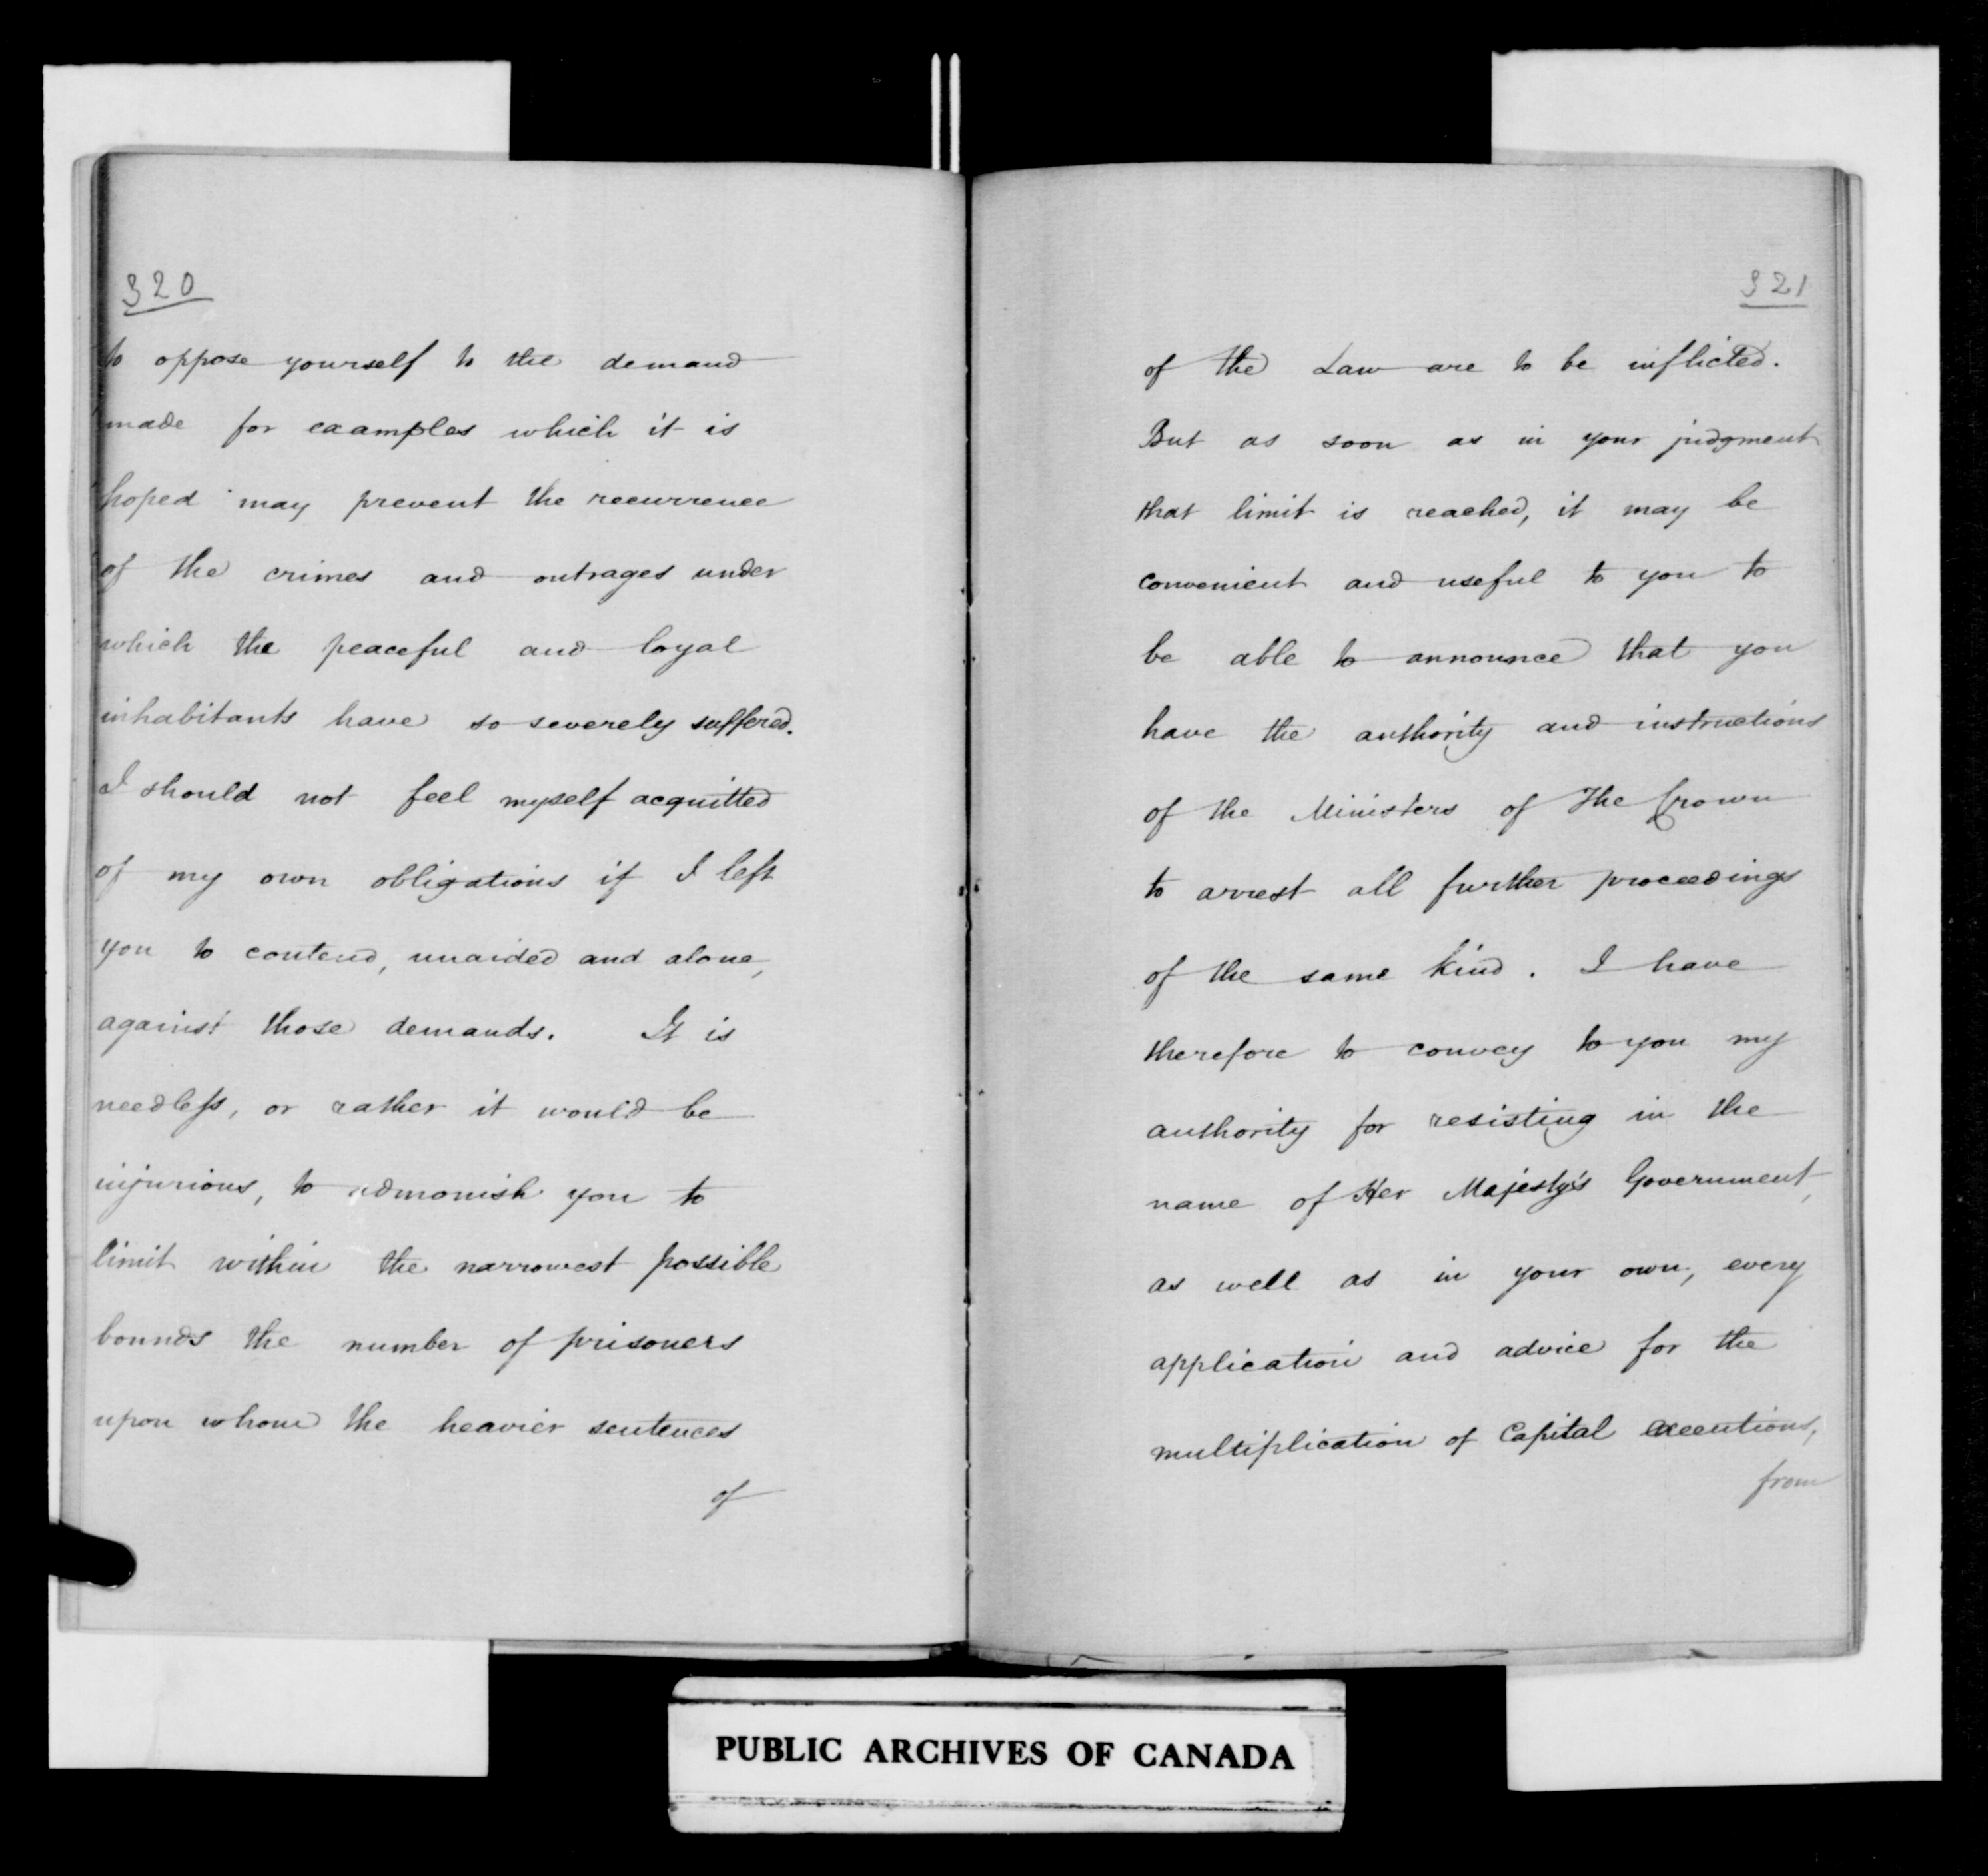 320
to oppose yourself to the demand
made for examples which it is
hoped may prevent the recurrence
of the crimes and outrages under
which the peaceful and loyal
inhabitants have so severely suffered.
I should not feel myself acquitted
of my own obligations if I left
you to contend, unaided and alone,
against those demands. It is
needless, or rather it would be
injurious, to admonish you to
limit within the narrowest possible
bounds the number of prisoners
upon whom the heavier sentences
of
321
of the Law are to be inflicted.
But as soon as in your judgment
that limit is reached, it may be
convenient and useful to you to
be able to announce that you
have the authority and instructions
of the Ministers of The Crown
to arrest all further proceedings
of the same kind. I have
therefore to convey to you my
authority for resisting in the
name of Her Majesty's Government,
as well as in your own, every
application and advice for the
multiplication of Capital executions,
from
PUBLIC ARCHIVES OF CANADA